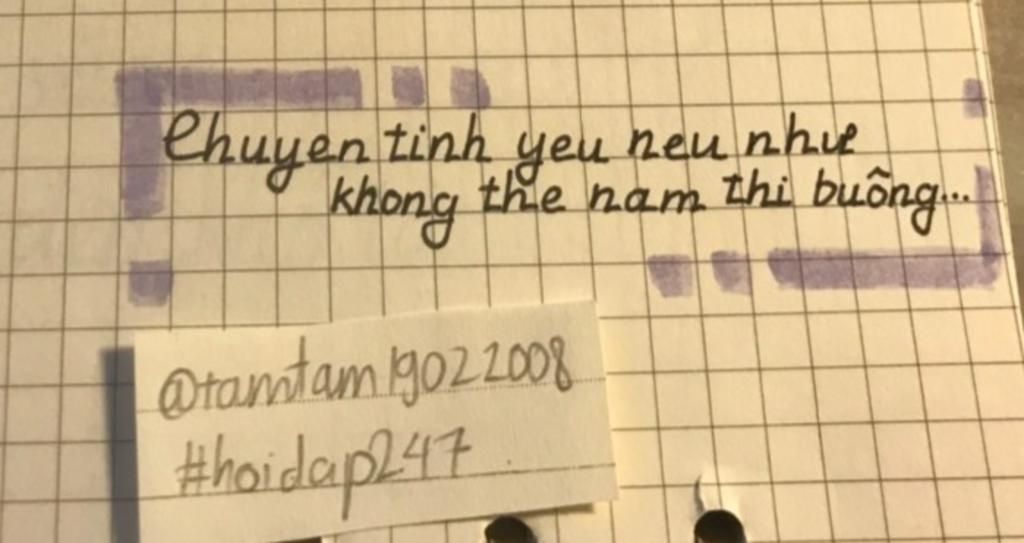 Chuyen tinh yeu neu như
khong the nam thi buông...
@tamtam19022008
#hoidap247